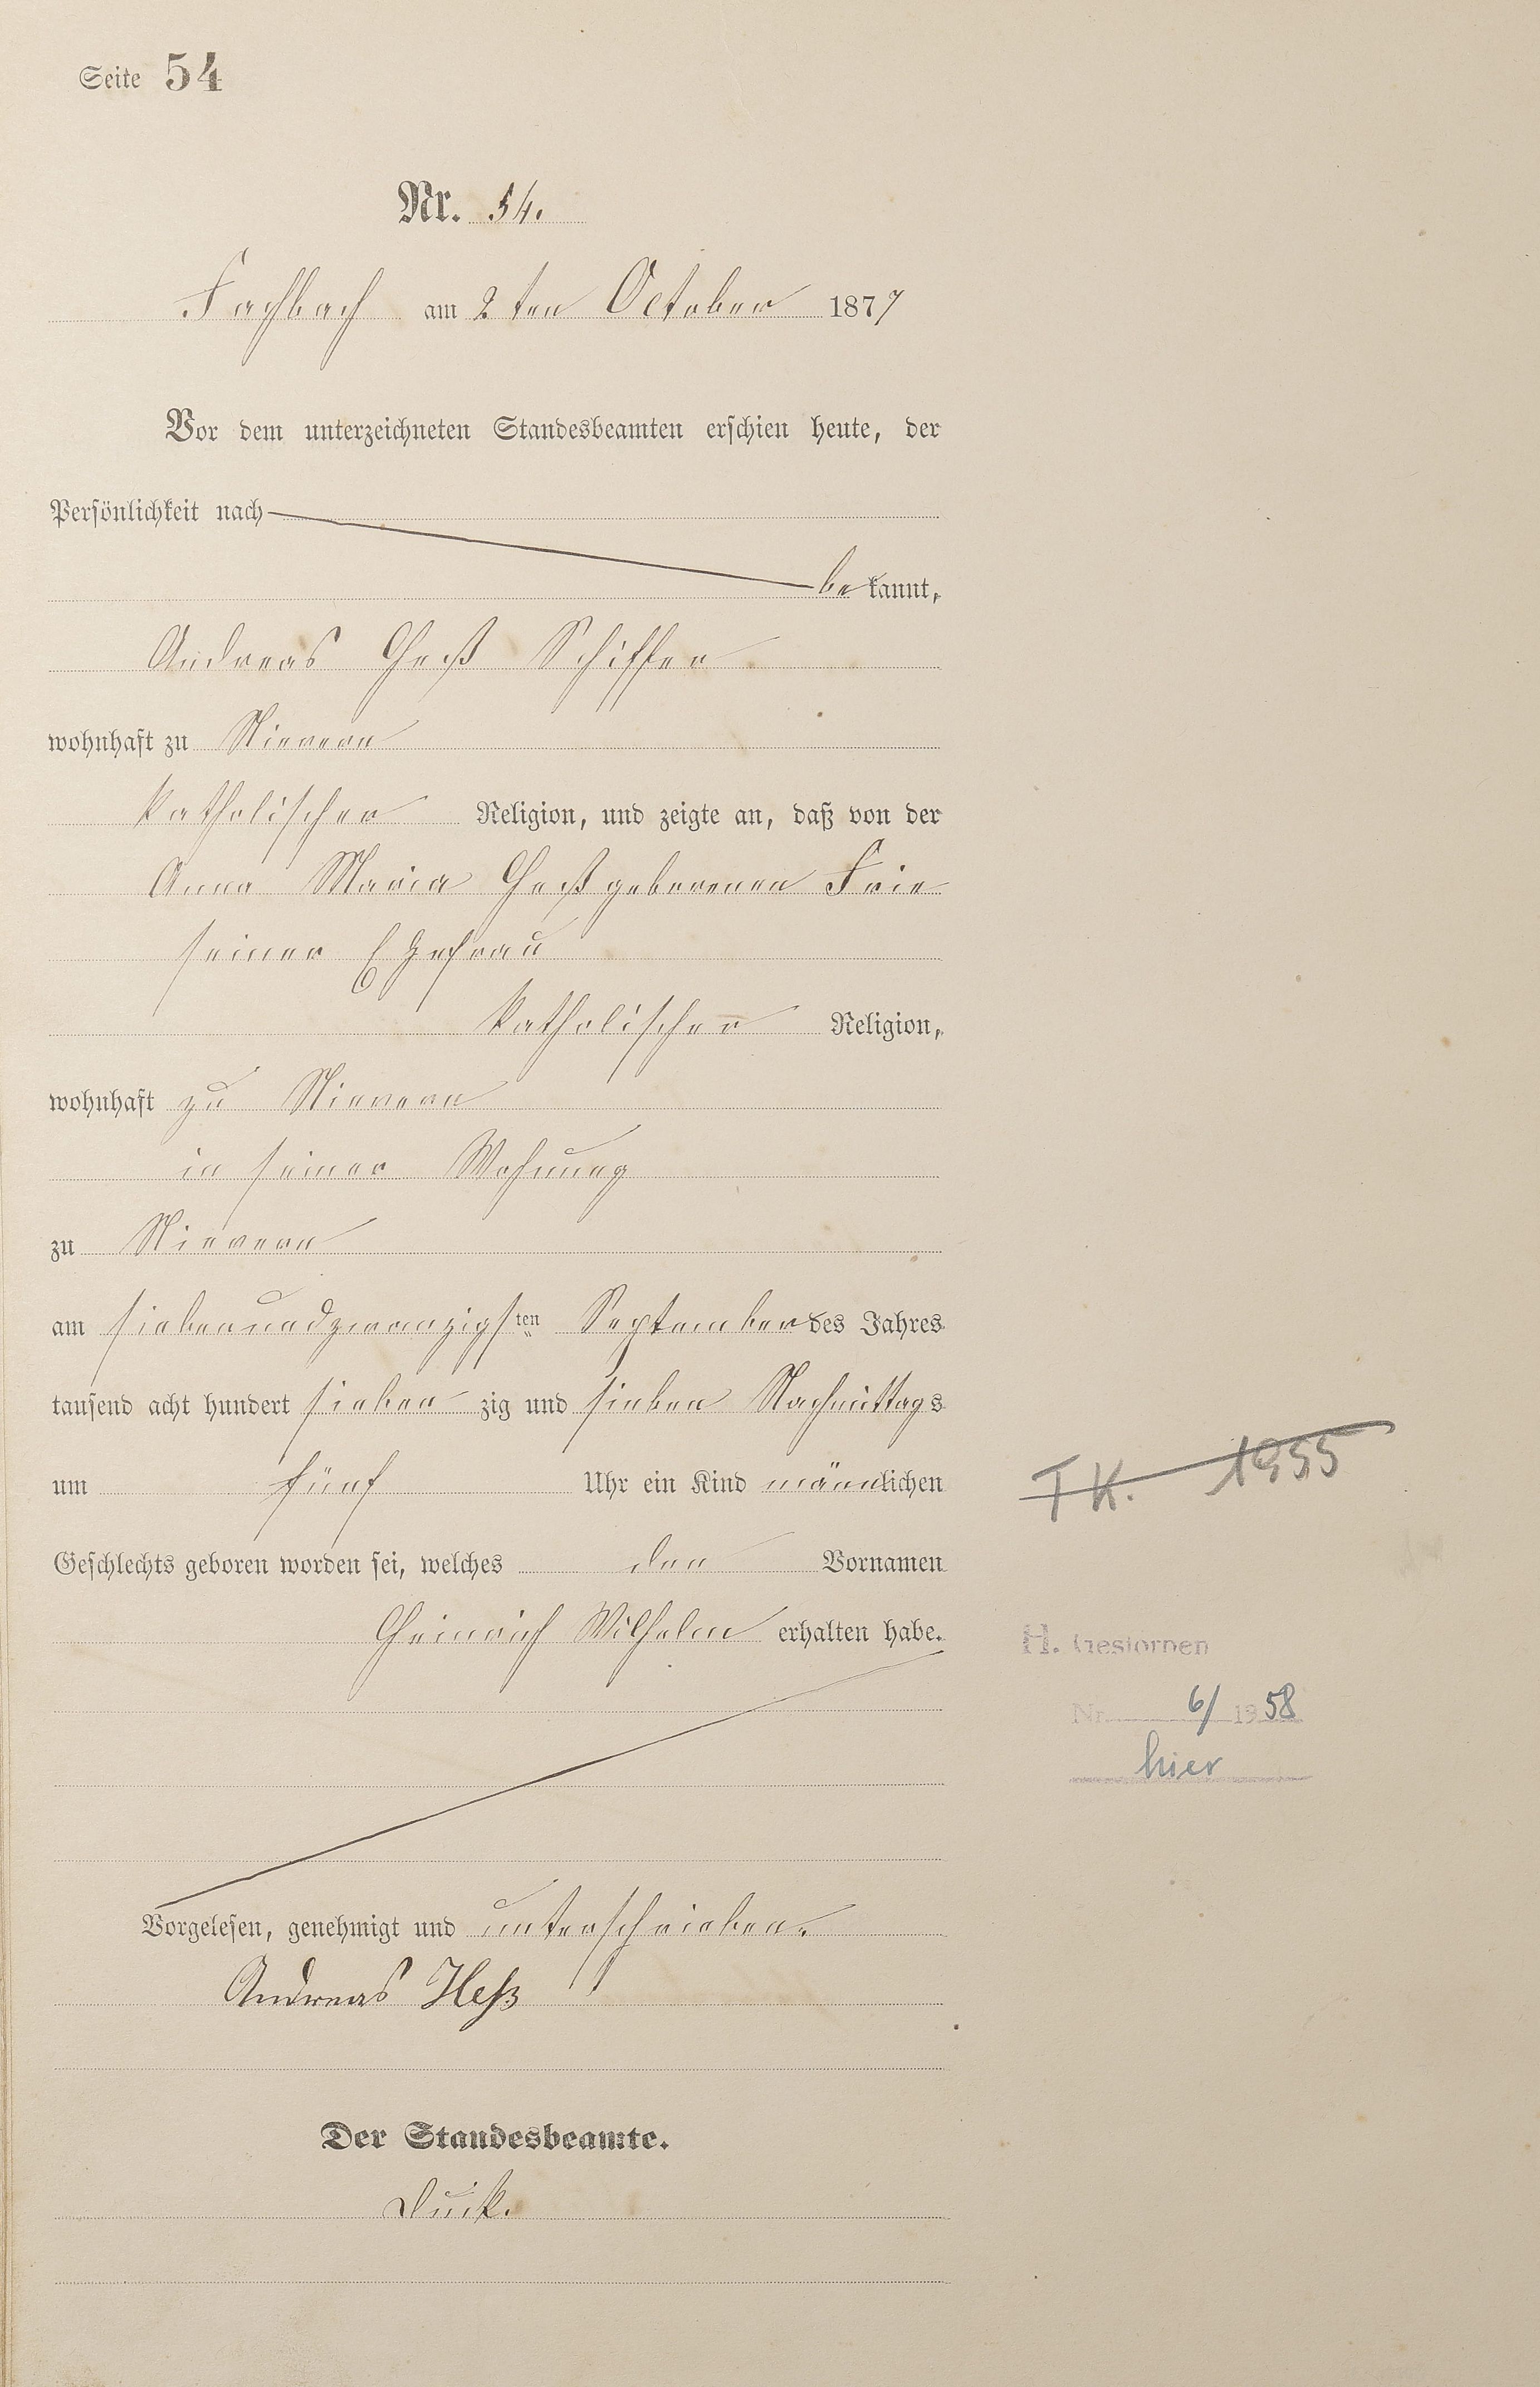 Seite 54
Nr. 54.
Fachbach am 2 ten October 1877
Vor dem unterzeichneten Standesbeamten erschien heute, der
Persönlichkeit nach
be kannt,
Andreas Heß Schiffer
wohnhaft zu Nievern
katholischer Religion, und zeigte an, daß von der
Anna Maria Heß geborenen
seiner Ehefrau
katholischer Religion,
wohnhaft zu Nievern
in seiner Wohnung
zu Nievern
am siebenundzwanzigsten September des Jahres
tausend acht hundert sieben zig und sieben Nachmittags
um fünf Uhr ein Kind männlichen
Geschlechts geboren worden sei, welches den Vornamen
Heinrich Wilhelm erhalten habe.
T K. 1955
H. Gestorben
Nr. 6/ 1958
hier
Vorgelesen, genehmigt und unterschrieben.
Andreas Heß
Der Standesbeamte.